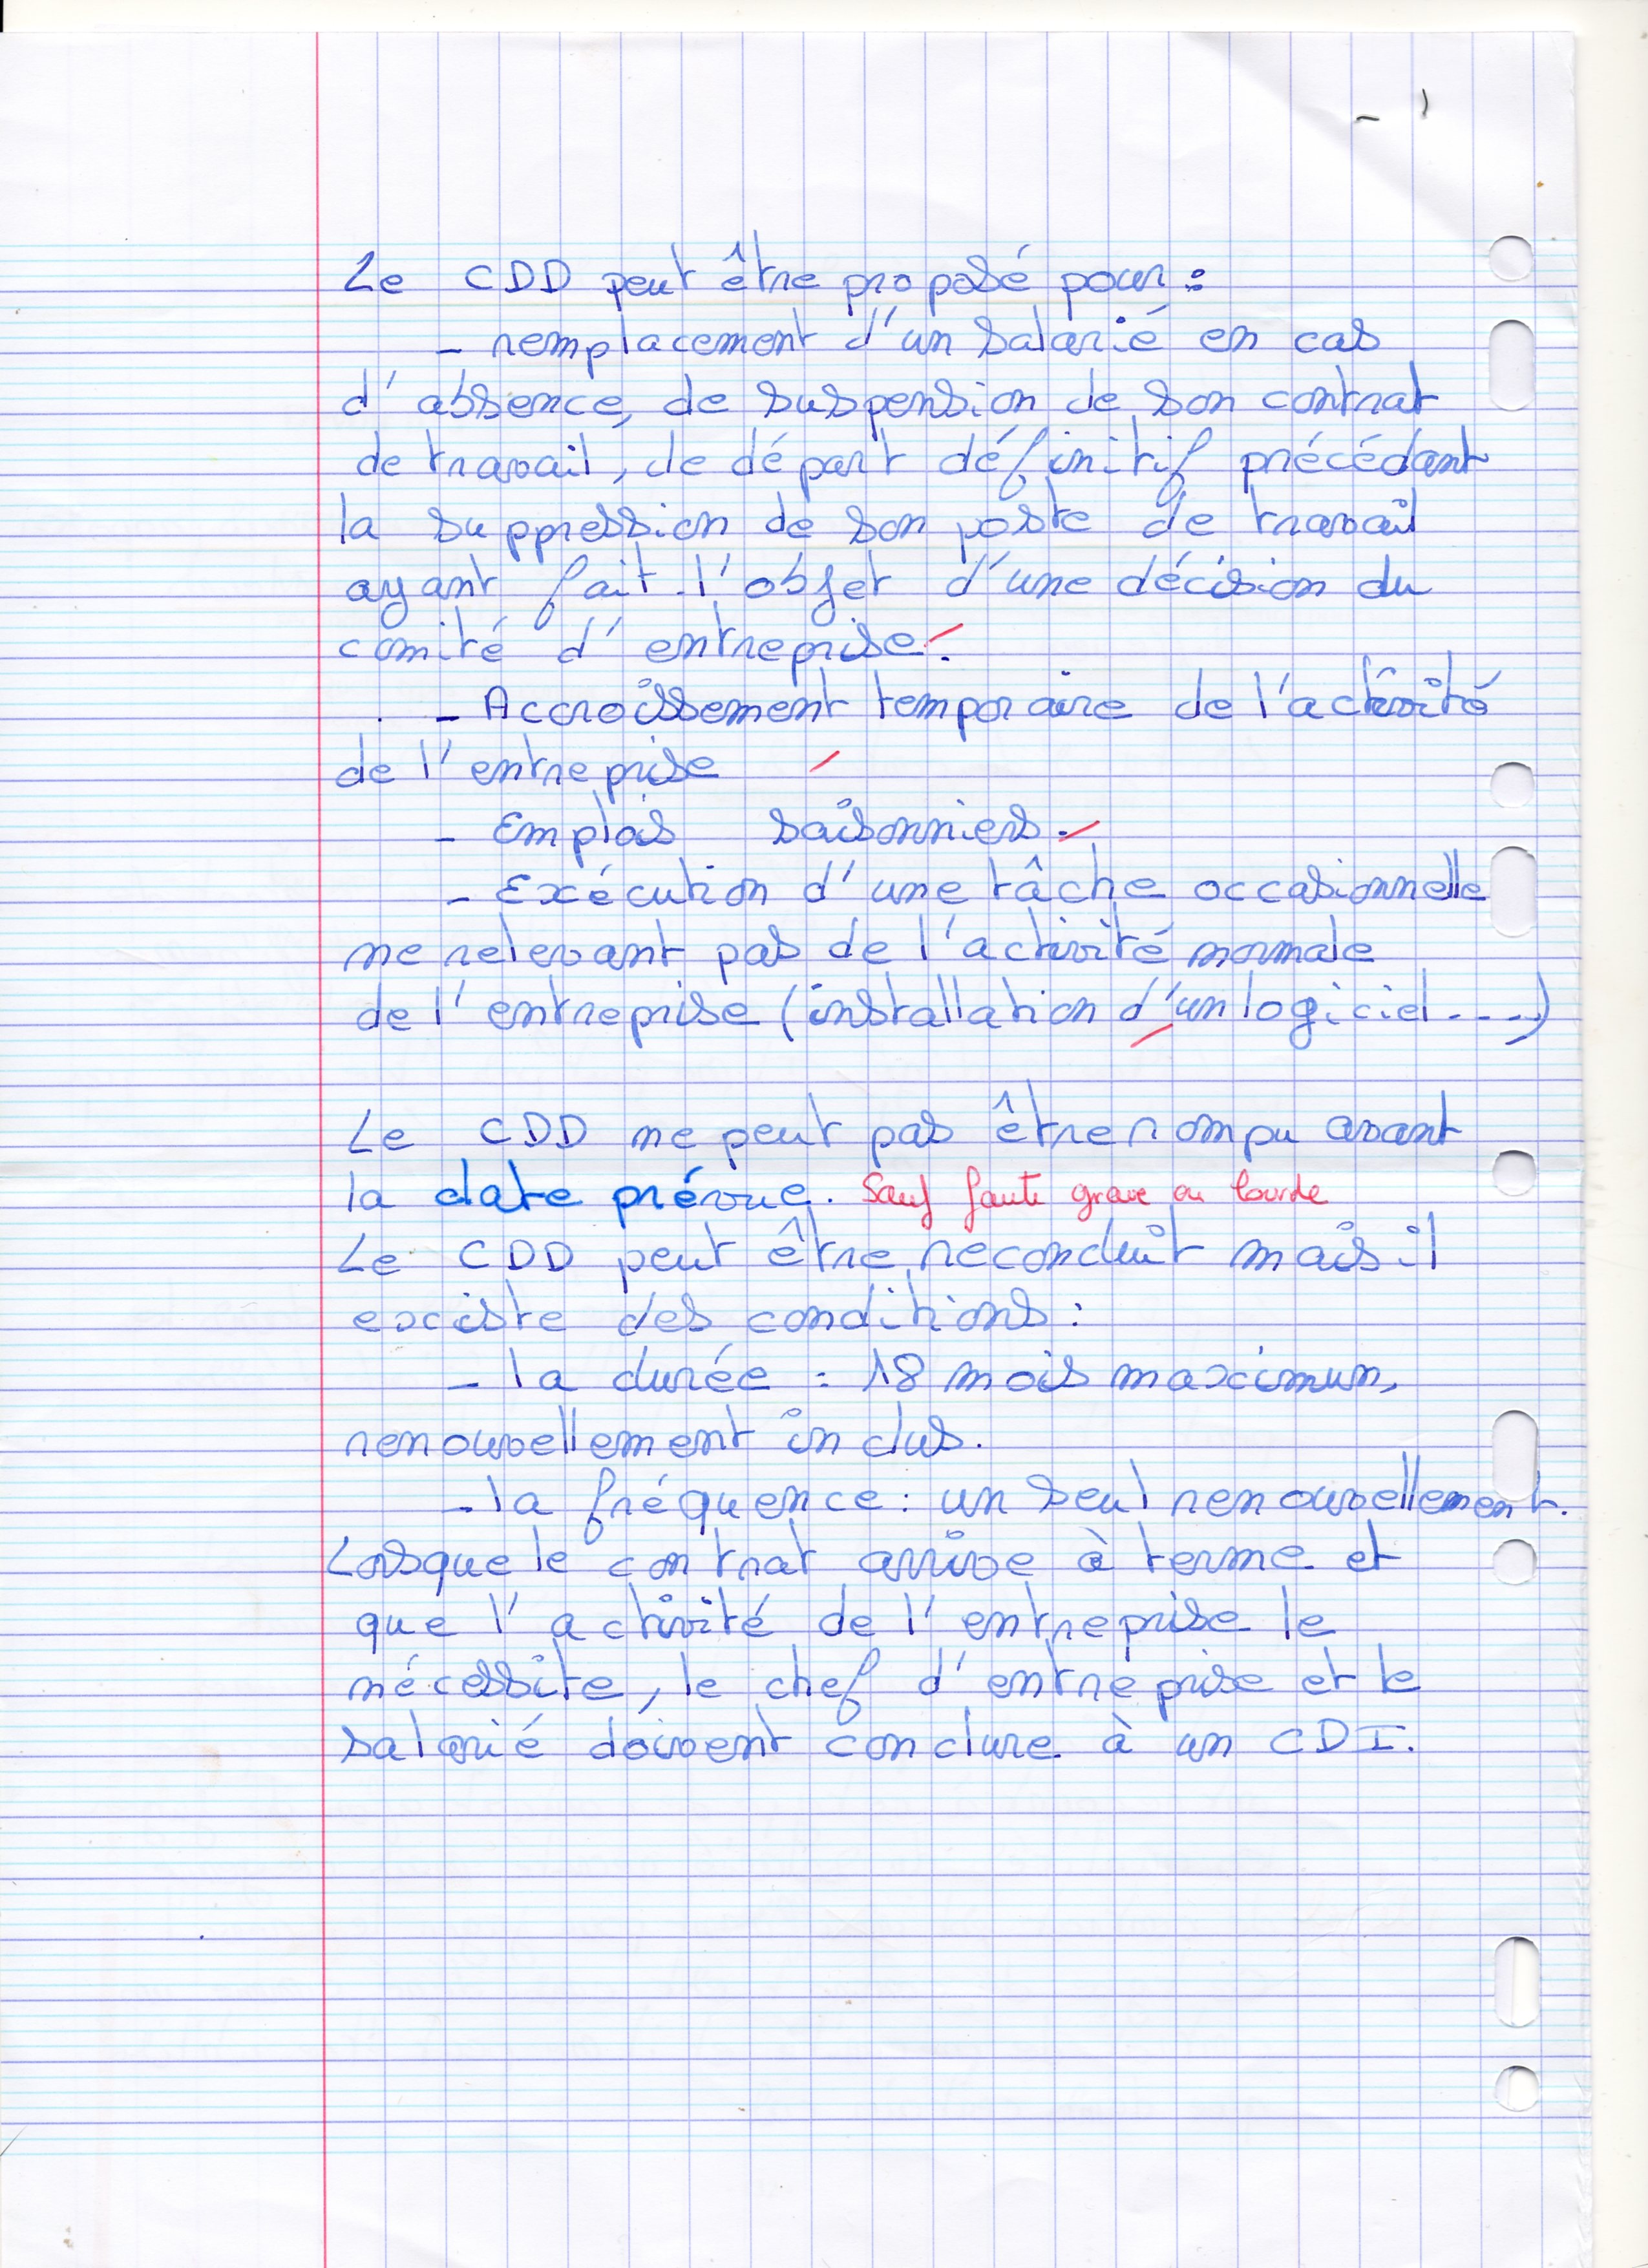 Le CDD peut être proposé pour :
- remplacement d'un salarié en cas
d'absence, de suspension de son contrat
de travail, de départ définitif précédant
la suppression de son poste de travail
ayant fait l'objet d'une décision du
comité d'entreprise.
- Accroissement temporaire de l'activité
de l'entreprise
- Emplois saisonniers.
- Exécution d'une tâche occasionnelle
ne relevant pas de l'activité normale
de l'entreprise (installation d'un logiciel....)
Le CDD ne peut pas être rompu avant
la date prévue. Sauf faute grave ou lourde
Le CDD peut être reconduit mais il
existe des conditions :
- la durée : 18 mois maximun,
renouvellement inclus.
- la fréquence : un seul renouvellement.
Lorsque le contrat arrive à terme et
que l'activité de l'entreprise le
nécessite, le chef d'entreprise et le
salarié doivent conclure à un CDI.